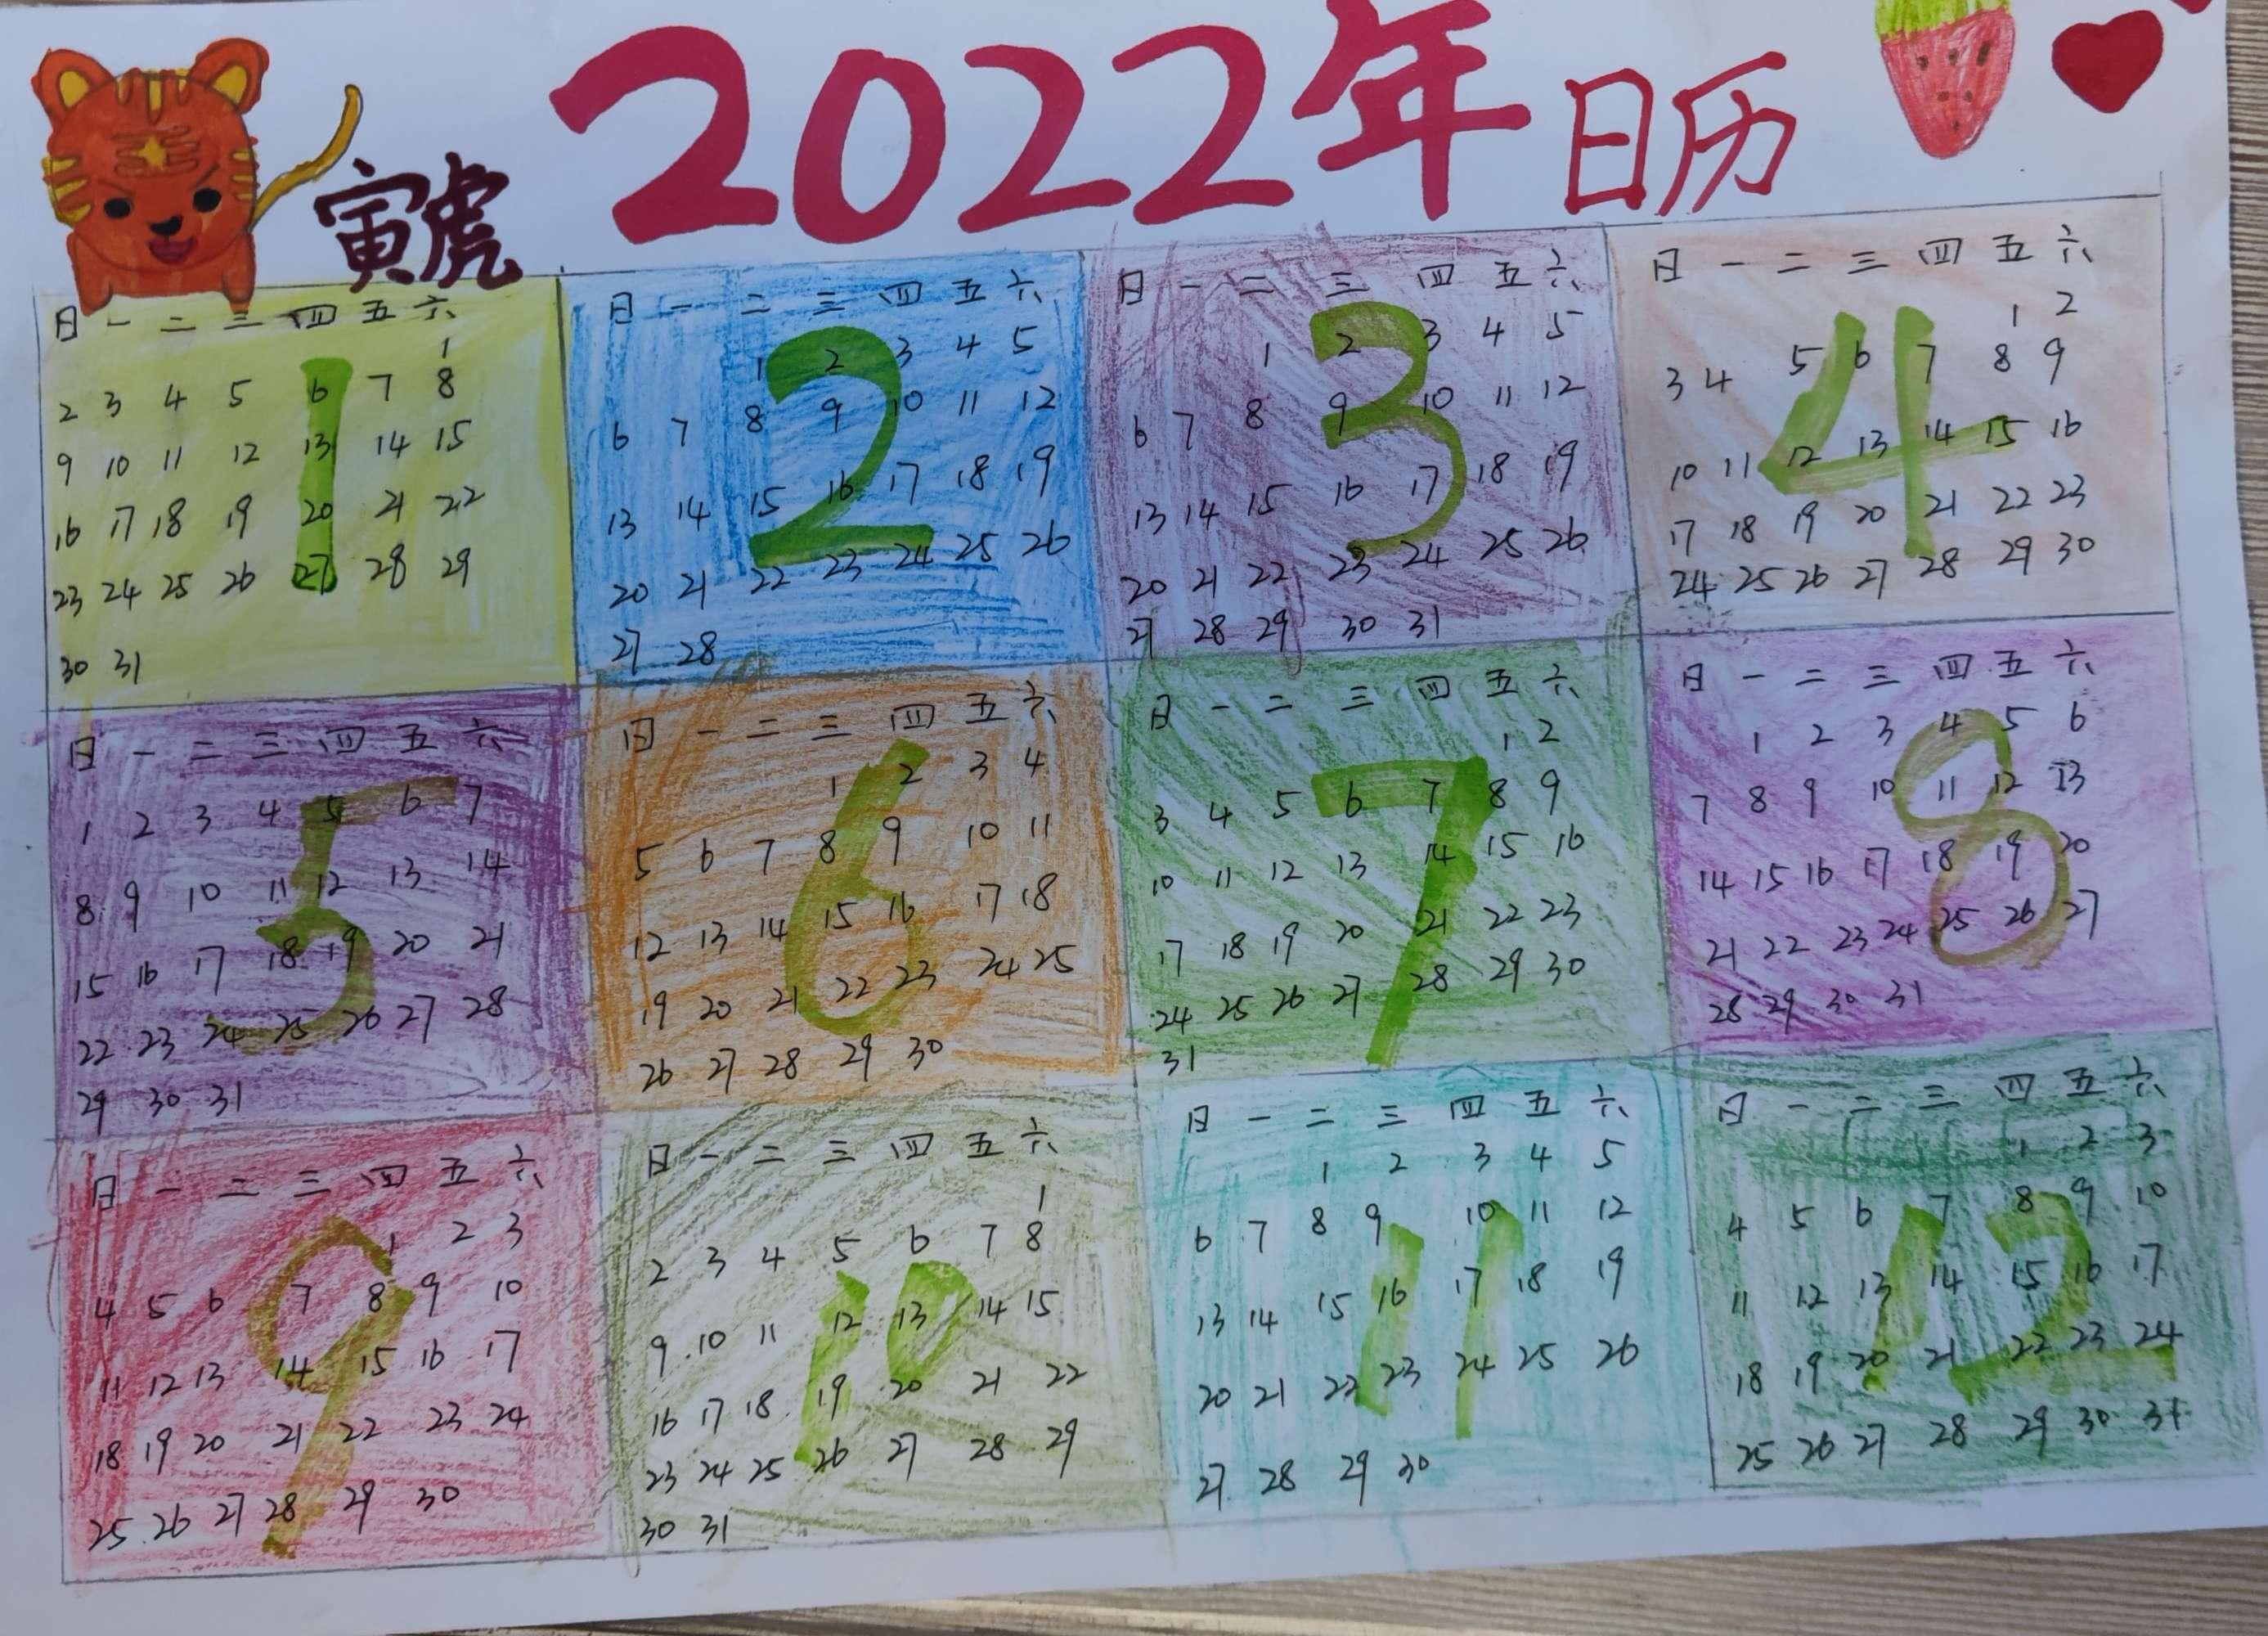 2022年日历
寅虎
日 一 二 三 四 五 六
1
2 3 4 5 6 7 8
9 10 11 12 13 14 15
16 17 18 19 20 21 22
23 24 25 26 27 28 29
30 31
1
日 一 二 三 四 五 六
1 2 3 4 5
6 7 8 9 10 11 12
13 14 15 16 17 18 19
20 21 22 23 24 25 26
27 28
2
日 一 二 三 四 五 六
1 2 3 4 5
6 7 8 9 10 11 12
13 14 15 16 17 18 19
20 21 22 23 24 25 26
27 28 29 30 31
3
日 一 二 三 四 五 六
1 2
3 4 5 6 7 8 9
10 11 12 13 14 15 16
17 18 19 20 21 22 23
24 25 26 27 28 29 30
4
日 一 二 三 四 五 六
1 2 3 4 5 6 7
8 9 10 11 12 13 14
15 16 17 18 19 20 21
22 23 24 25 26 27 28
29 30 31
5
日 一 二 三 四 五 六
1 2 3 4
5 6 7 8 9 10 11
12 13 14 15 16 17 18
19 20 21 22 23 24 25
26 27 28 29 30
6
日 一 二 三 四 五 六
1 2
3 4 5 6 7 8 9
10 11 12 13 14 15 16
17 18 19 20 21 22 23
24 25 26 27 28 29 30
31
7
日 一 二 三 四 五 六
1 2 3 4 5 6
7 8 9 10 11 12 13
14 15 16 17 18 19 20
21 22 23 24 25 26 27
28 29 30 31
8
日 一 二 三 四 五 六
1 2 3
4 5 6 7 8 9 10
11 12 13 14 15 16 17
18 19 20 21 22 23 24
25 26 27 28 29 30
9
日 一 二 三 四 五 六
1
2 3 4 5 6 7 8
9 10 11 12 13 14 15
16 17 18 19 20 21 22
23 24 25 26 27 28 29
30 31
10
日 一 二 三 四 五 六
1 2 3 4 5
6 7 8 9 10 11 12
13 14 15 16 17 18 19
20 21 22 23 24 25 26
27 28 29 30
11
日 一 二 三 四 五 六
1 2 3
4 5 6 7 8 9 10
11 12 13 14 15 16 17
18 19 20 21 22 23 24
25 26 27 28 29 30 31
12